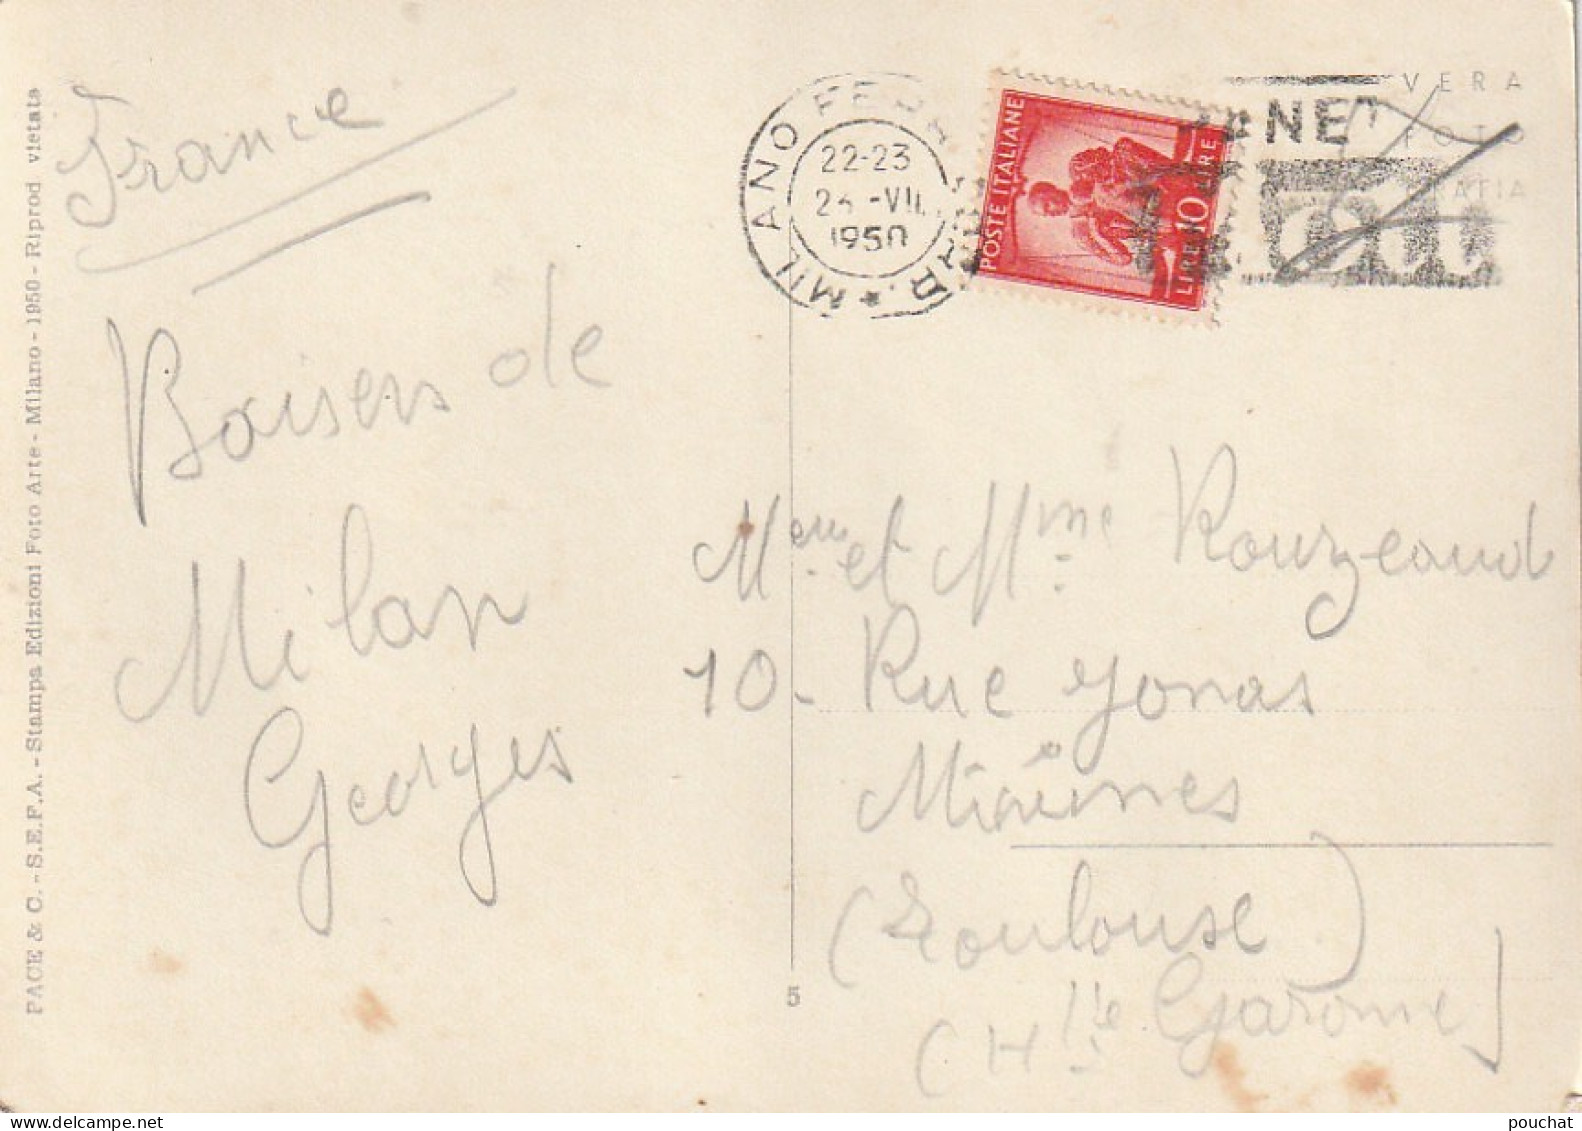 France
Baisers de
Milan
Georges
PACE & C. - S.E.F.A. - Stampa Edizioni Foto Arte - Milano - 1950 - Riprod vietata
MILANO FERR
22-23
-VII
1950
POSTE ITALIANE
LIRE 10 LIRE
VERA
FOTO
GRAFIA
et Mme Rouzeaud
10 - Rue Jonas
Minimes
(Toulouse)
(Hte Garonne)
5
pouchat